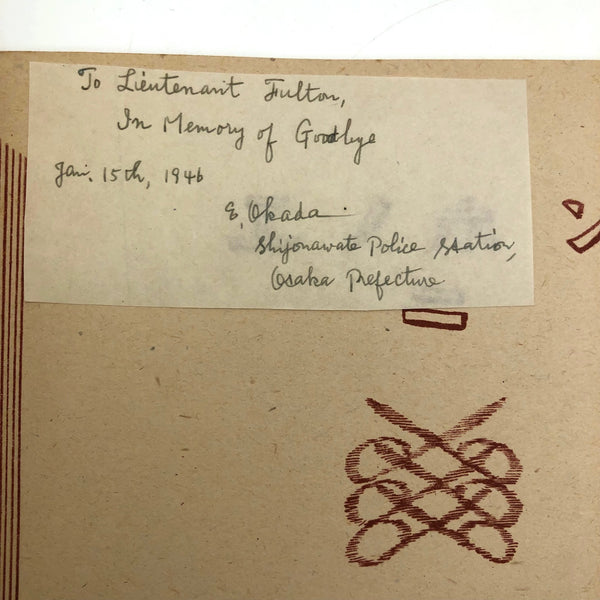 To Lieutenant Fulton,
In Memory of Goodbye
Jan. 15th, 1946
E. Okada.
Shijonawate Police Station,
Osaka Prefecture